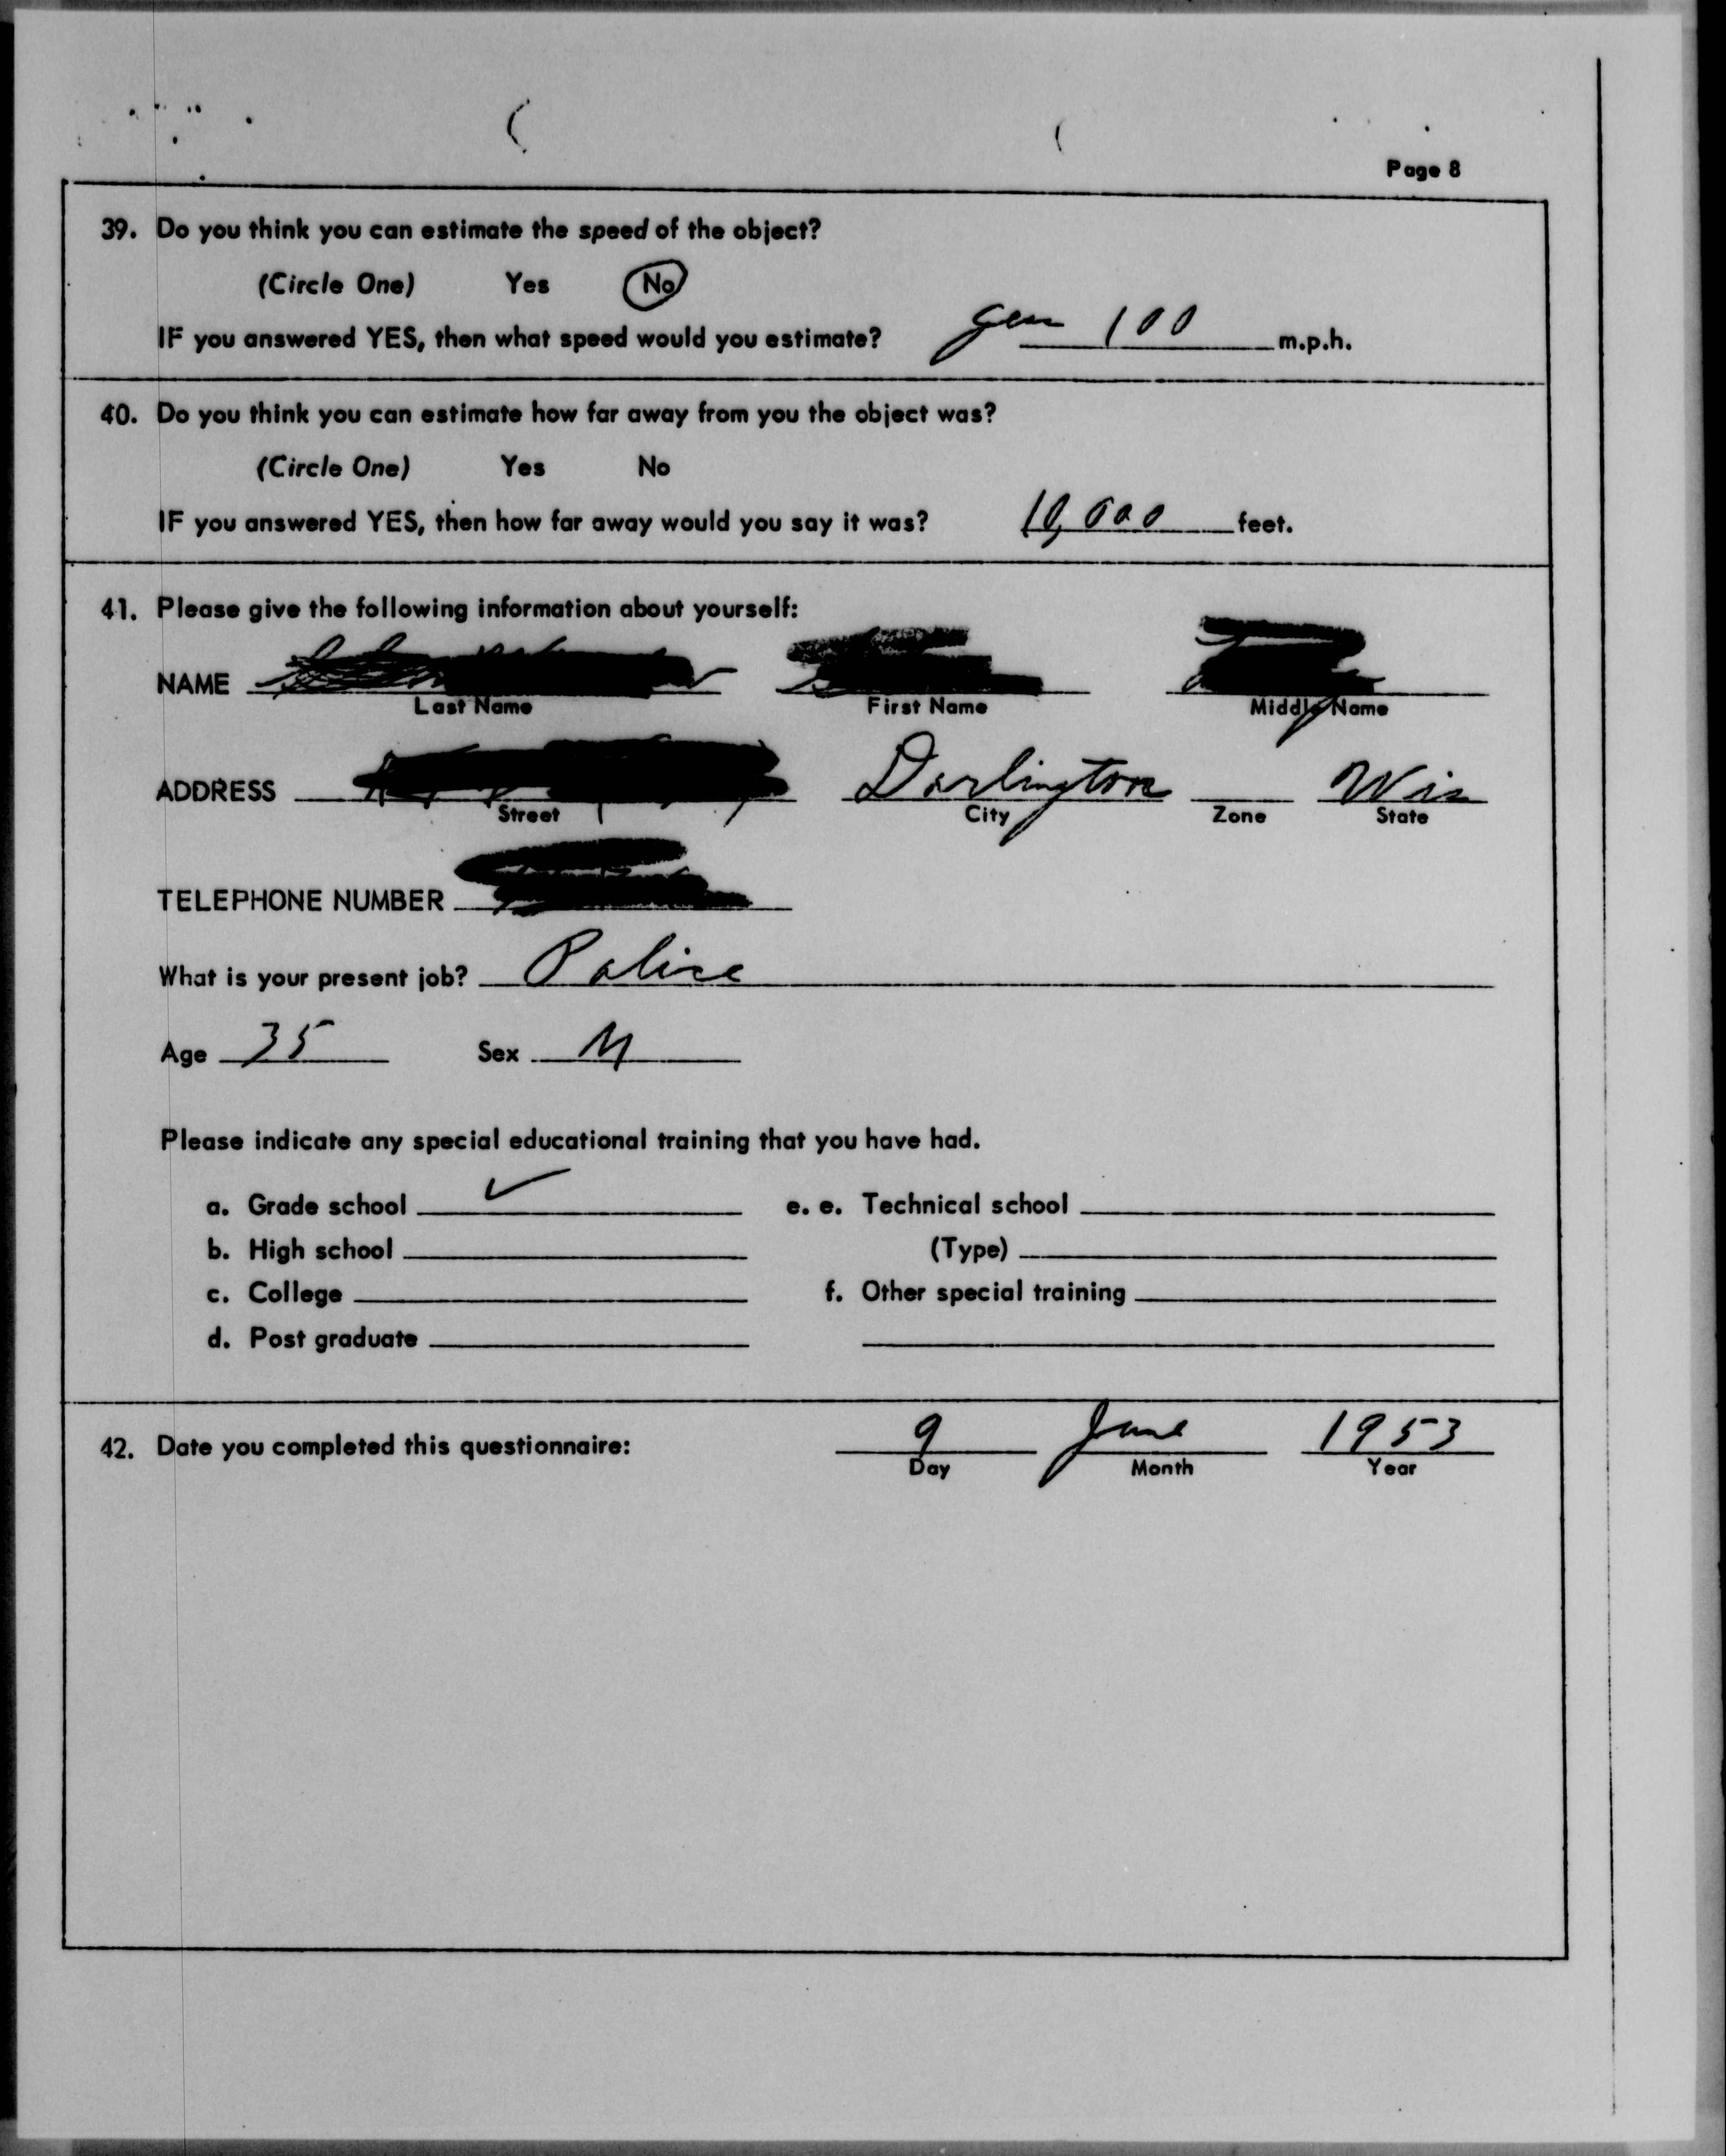 Page 8
39. Do you think you can estimate the speed of the object?
(Circle One) Yes No
IF you answered YES, then what speed would you estimate? 100 m.p.h.
40. Do you think you can estimate how far away from you the object was?
(Circle One) Yes No
IF you answered YES, then how far away would you say it was? 10,000 feet.
41. Please give the following information about yourself:
NAME
Last Name First Name Middle Name
ADDRESS Darlington Wis
Street City Zone State
TELEPHONE NUMBER
What is your present job? Police
Age 35 Sex M
Please indicate any special educational training that you have had.
a. Grade school ✓ e. e. Technical school
b. High school (Type)
c. College f. Other special training
d. Post graduate
42. Date you completed this questionnaire: 9 June 1953
Day Month Year